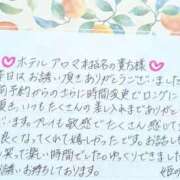 ホテルアロマ本指名の貴方様
本日はお誘い頂きありがとうございました
前予約からさらに時間変更でロングに
いつもたくさんの差し入れまでありがと
プレイも敏感でたくさん感じて
良くなってくれて嬉しかったです。お
笑った楽しい時間でした。ゆっくりできました
お誘いお待ちしております。